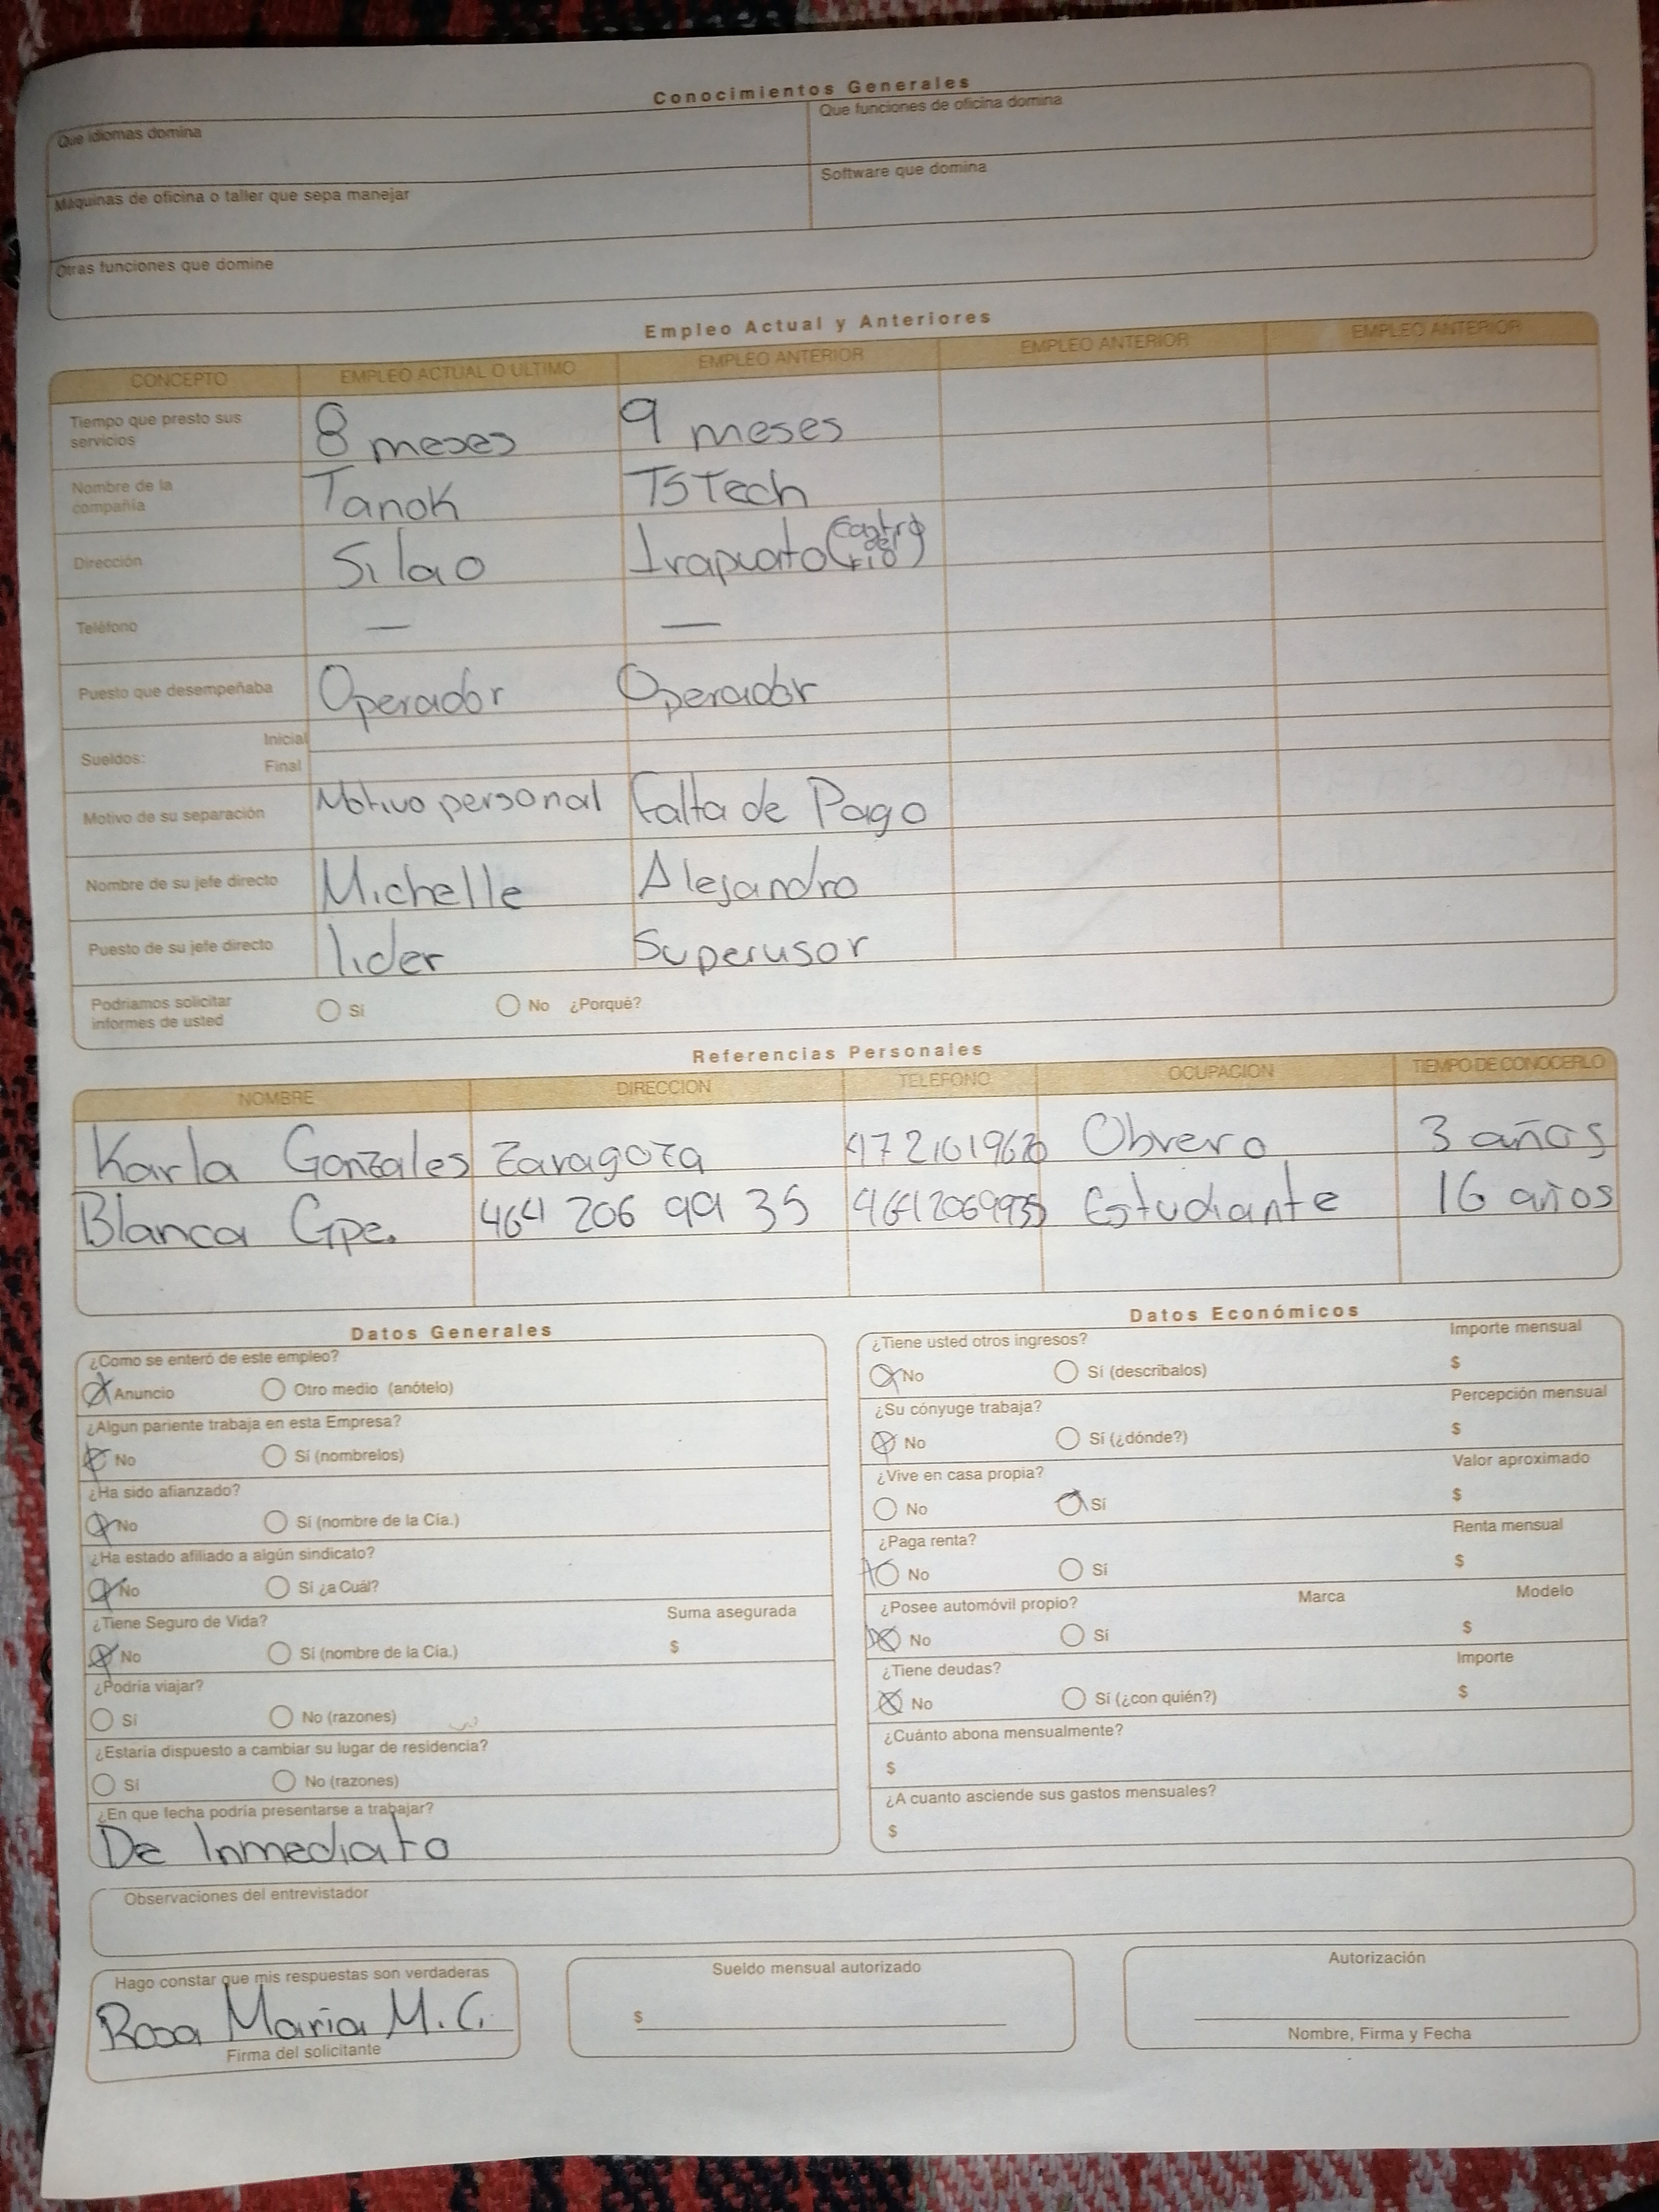 Conocimientos Generales
Que idiomas domina
Que funciones de oficina domina
Máquinas de oficina o taller que sepa manejar
Software que domina
Otras funciones que domine
Empleo Actual y Anteriores
CONCEPTO EMPLEO ACTUAL O ULTIMO EMPLEO ANTERIOR EMPLEO ANTERIOR EMPLEO ANTERIOR
Tiempo que presto sus servicios 8 meses 9 meses
Nombre de la compañia Tanok TSTech
Dirección Silao Irapuato (Castro del rio)
Teléfono — —
Puesto que desempeñaba Operador Operador
Sueldos: Inicial
Final
Motivo de su separación Motivo personal Falta de Pago
Nombre de su jefe directo Michelle Alejandro
Puesto de su jefe directo lider Superusor
Podriamos solicitar informes de usted Sí No ¿Porqué?
Referencias Personales
NOMBRE DIRECCION TELEFONO OCUPACION TIEMPO DE CONOCERLO
Karla Gonzales Zaragoza Obrero 3 años
Blanca Gpe. 464 206 99 35 4642069935 Estudiante 16 años
Datos Generales
¿Como se enteró de este empleo?
Anuncio Otro medio (anótelo)
¿Algun pariente trabaja en esta Empresa?
No Sí (nombrelos)
¿Ha sido afianzado?
No Sí (nombre de la Cía.)
¿Ha estado afiliado a algún sindicato?
No Sí ¿a Cuál?
¿Tiene Seguro de Vida? Suma asegurada
No Sí (nombre de la Cía.) $
¿Podría viajar?
Sí No (razones)
¿Estaría dispuesto a cambiar su lugar de residencia?
Sí No (razones)
¿En que fecha podría presentarse a trabajar?
De Inmediato
Datos Económicos
¿Tiene usted otros ingresos? Importe mensual
No Sí (describalos) $
¿Su cónyuge trabaja? Percepción mensual
No Sí (¿dónde?) $
¿Vive en casa propia? Valor aproximado
No Sí $
¿Paga renta? Renta mensual
No Sí $
¿Posee automóvil propio? Marca Modelo
No Sí $
¿Tiene deudas? Importe
No Sí (¿con quién?) $
¿Cuánto abona mensualmente?
$
¿A cuanto asciende sus gastos mensuales?
$
Observaciones del entrevistador
Hago constar que mis respuestas son verdaderas
Rosa Maria M.C.
Firma del solicitante
Sueldo mensual autorizado
$
Autorización
Nombre, Firma y Fecha